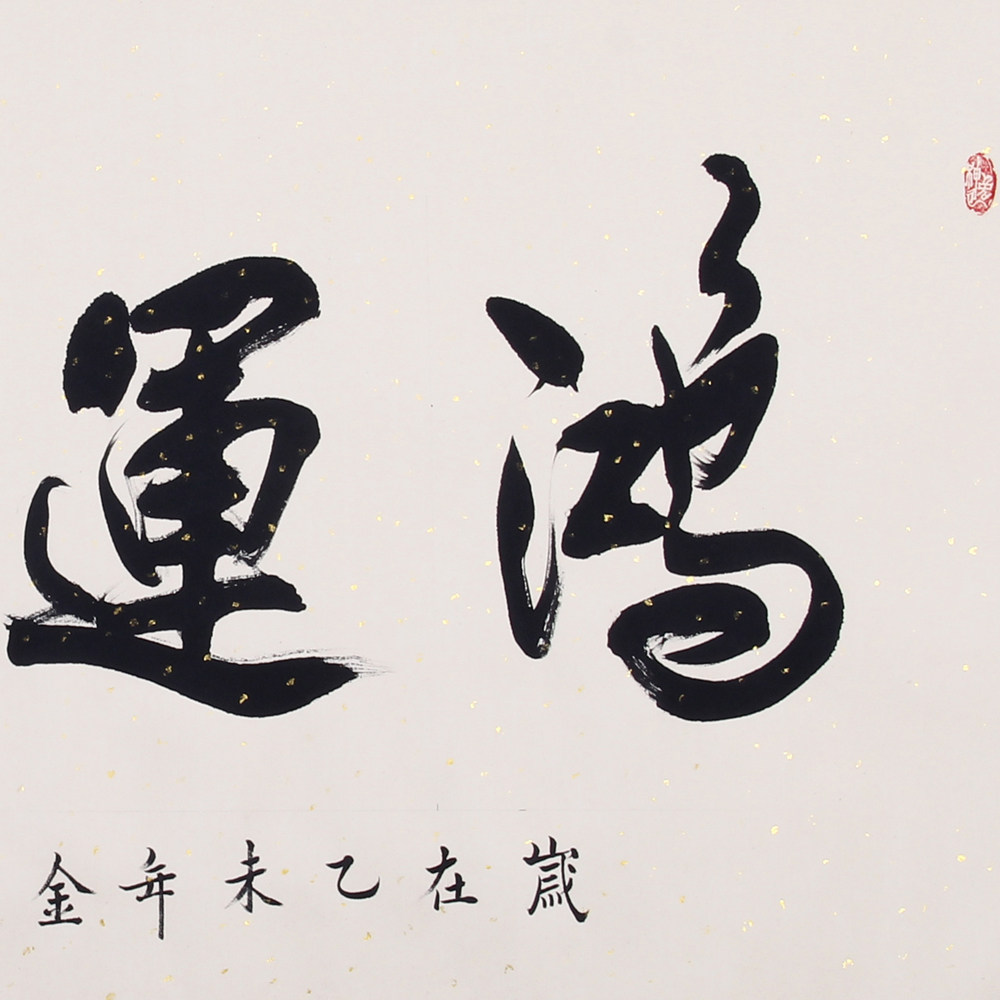 鴻運
歲在乙未年金